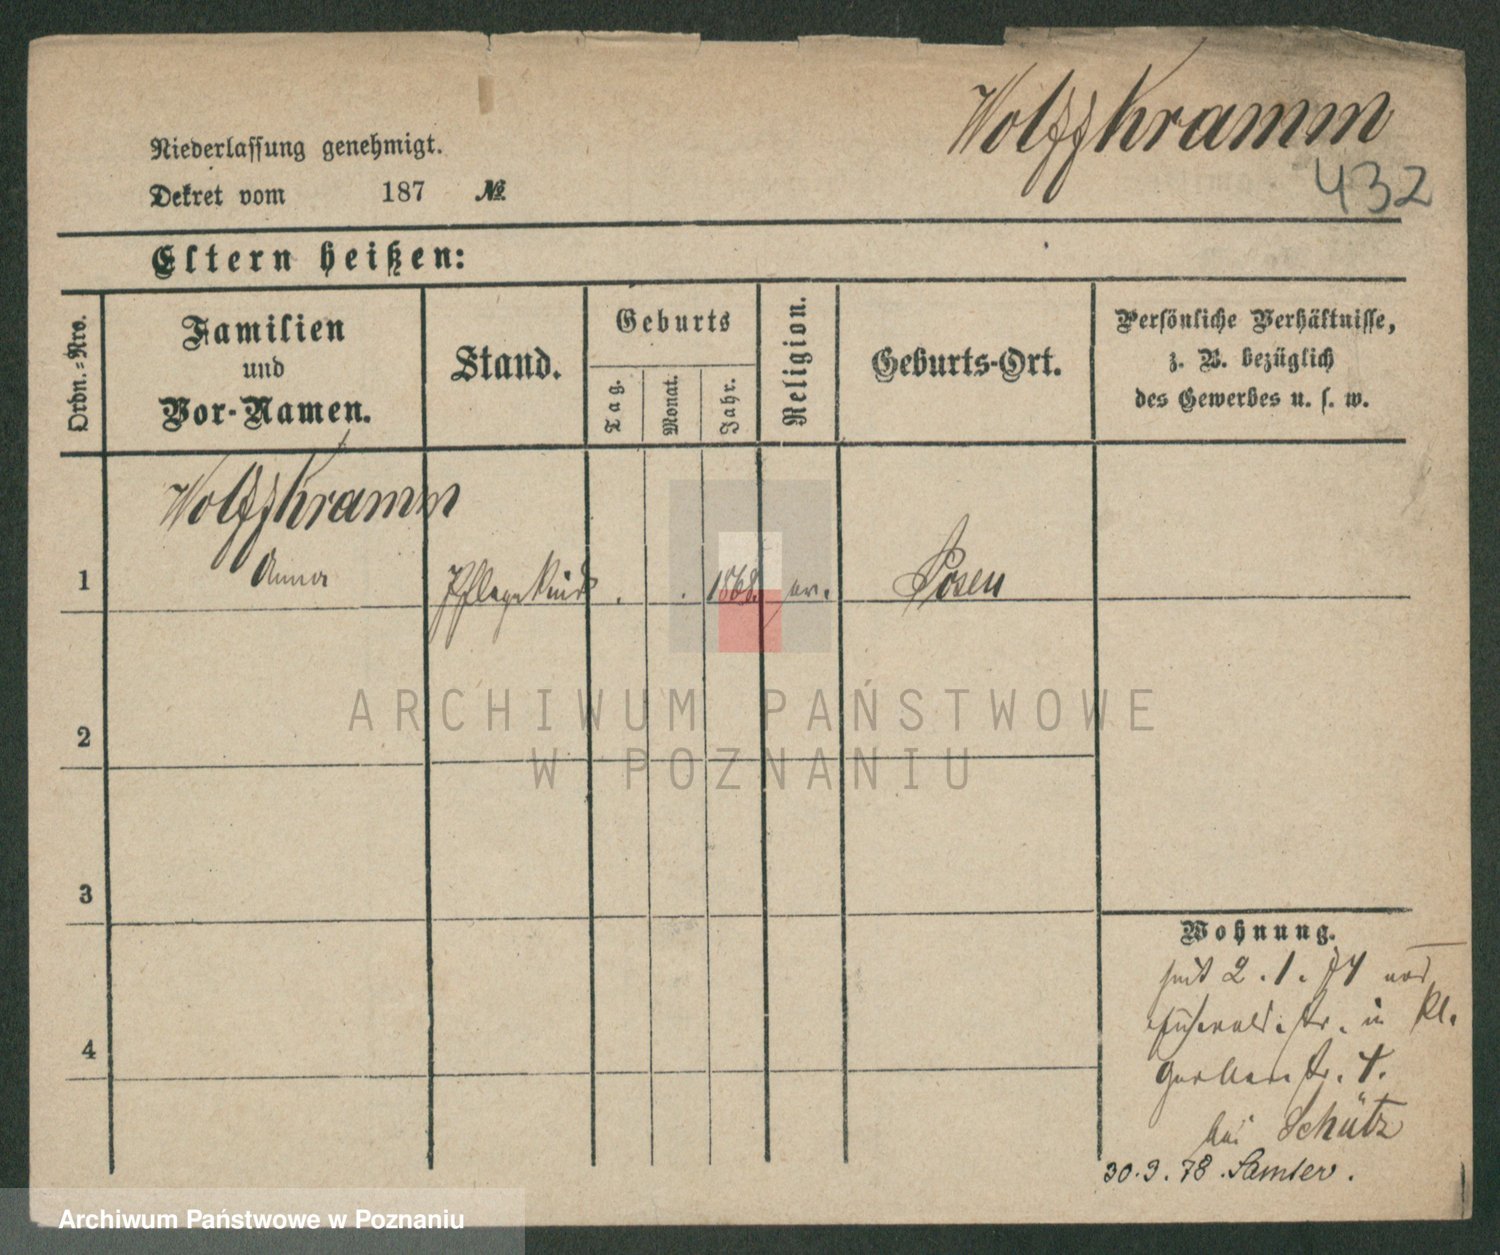 Wolffkramm
432
Niederlassung genehmigt.
Dekret vom 187 №
Eltern heißen:
Ordn.-Nro.
Familien
und
Vor-Namen.
Stand.
Geburts
Tag.
Monat.
Jahr.
Religion.
Geburts-Ort.
Persönliche Verhältnisse,
z. B. bezüglich
des Gewerbes u. s. w.
Wolffkramm
1 Anna Pflegekind . . 1868. ev. Posen
2
3
4
ARCHIWUM PAŃSTWOWE
W POZNANIU
Wohnung.
seit 2.1.74 von
str. in Kl.
Gerberstr. 4.
bei Schütz
30.9.78. Samter.
Archiwum Państwowe w Poznaniu